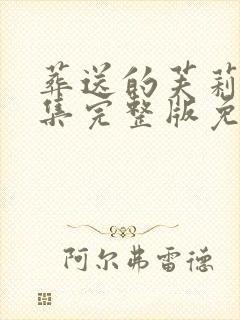 葬送的芙莉
集完整版免
阿尔弗雷德